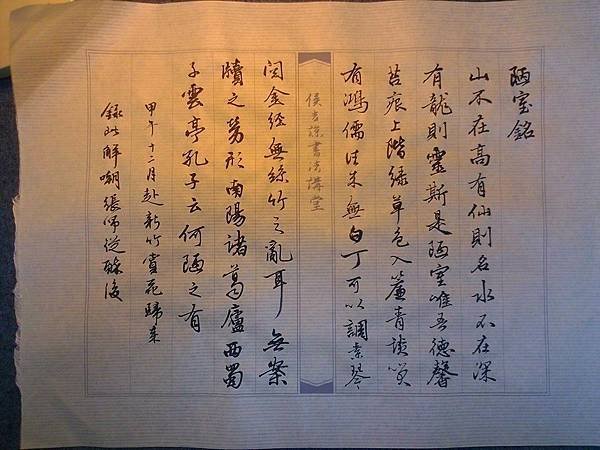 陋室銘
山不在高有仙則名水不在深
有龍則靈斯是陋室唯吾德馨
苔痕上階綠草色入簾青談笑
有鴻儒往來無白丁可以調素琴
侯吉諒書法講堂
閱金經無絲竹之亂耳無案
牘之勞形南陽諸葛廬西蜀
子雲亭孔子云何陋之有
甲午十二月赴新竹賞花歸來
錄此解嘲張